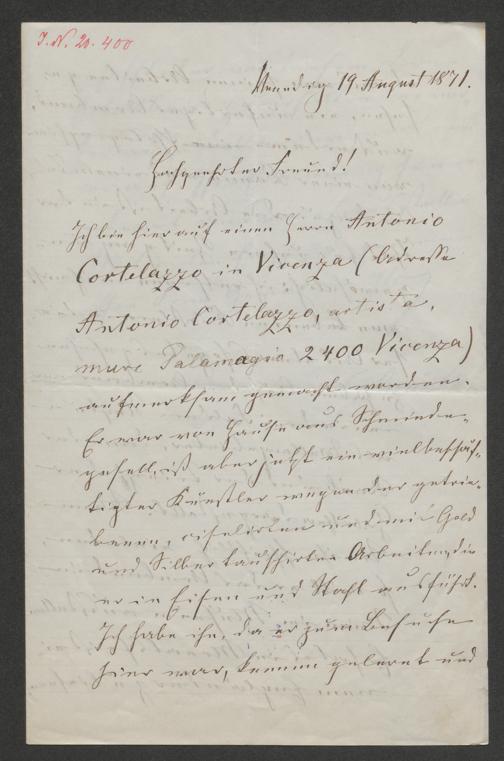 J. N. 20.400
Venedig 19 August 1871.
Hochgeehrter Freund!
Ich bin hier auf einen Herrn Antonio
Cortelazzo in Vicenza (Adresse
Antonio Cortelazzo, artista,
mure Palamagio 2400 Vicenza)
aufmerksam gemacht worden.
Er war von Hause aus Schmiede-
gesell, ist aber jetzt ein vielbeschäf-
tigter Künstler wegen der getrie-
benen, ciselirten und mit Gold
und Silber tauschirten Arbeiten, die
er in Eisen und Stahl ausführt.
Ich habe ihn, da er zum Besuche
hier war, kennen gelernt und